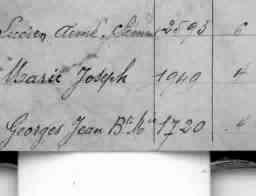 Lucien Aimé 2593 6
Marie Joseph 1949 4
Georges Jean Bte 1720 4